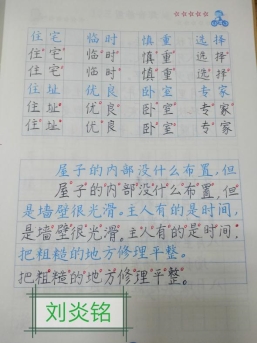 住宅 临时 慎重 选择
住宅 临时 慎重 选择
住宅 临时 慎重 选择
住址 优良 卧室 专家
住址 优良 卧室 专家
住址 优良 卧室 专家
屋子的内部没什么布置,但
屋子的内部没什么布置,但
是墙壁很光滑。主人有的是时间,
是墙壁很光滑。主人有的是时间,
把粗糙的地方修理平整。
把粗糙的地方修理平整。
刘炎铭